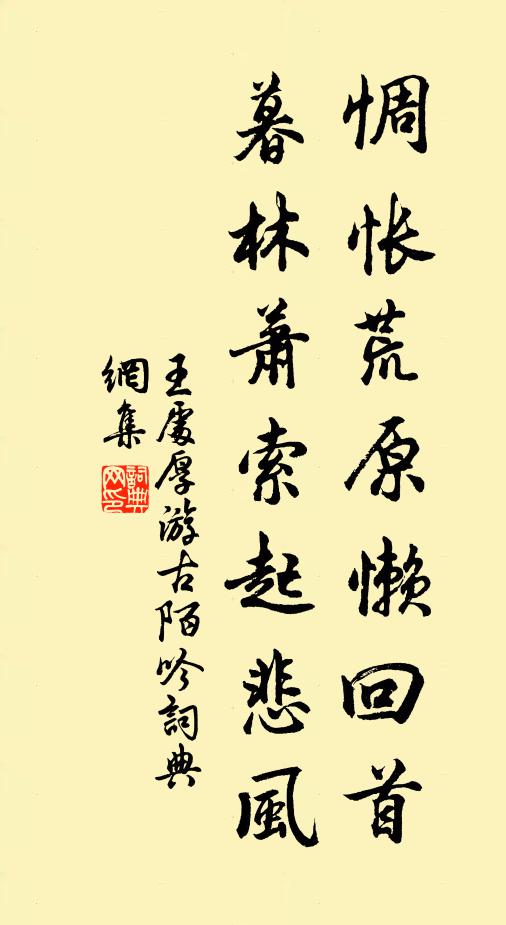 惆怅荒原懒回首
暮林萧索起悲風
王處厚游古陌吟詞典
網集
詞典
网印